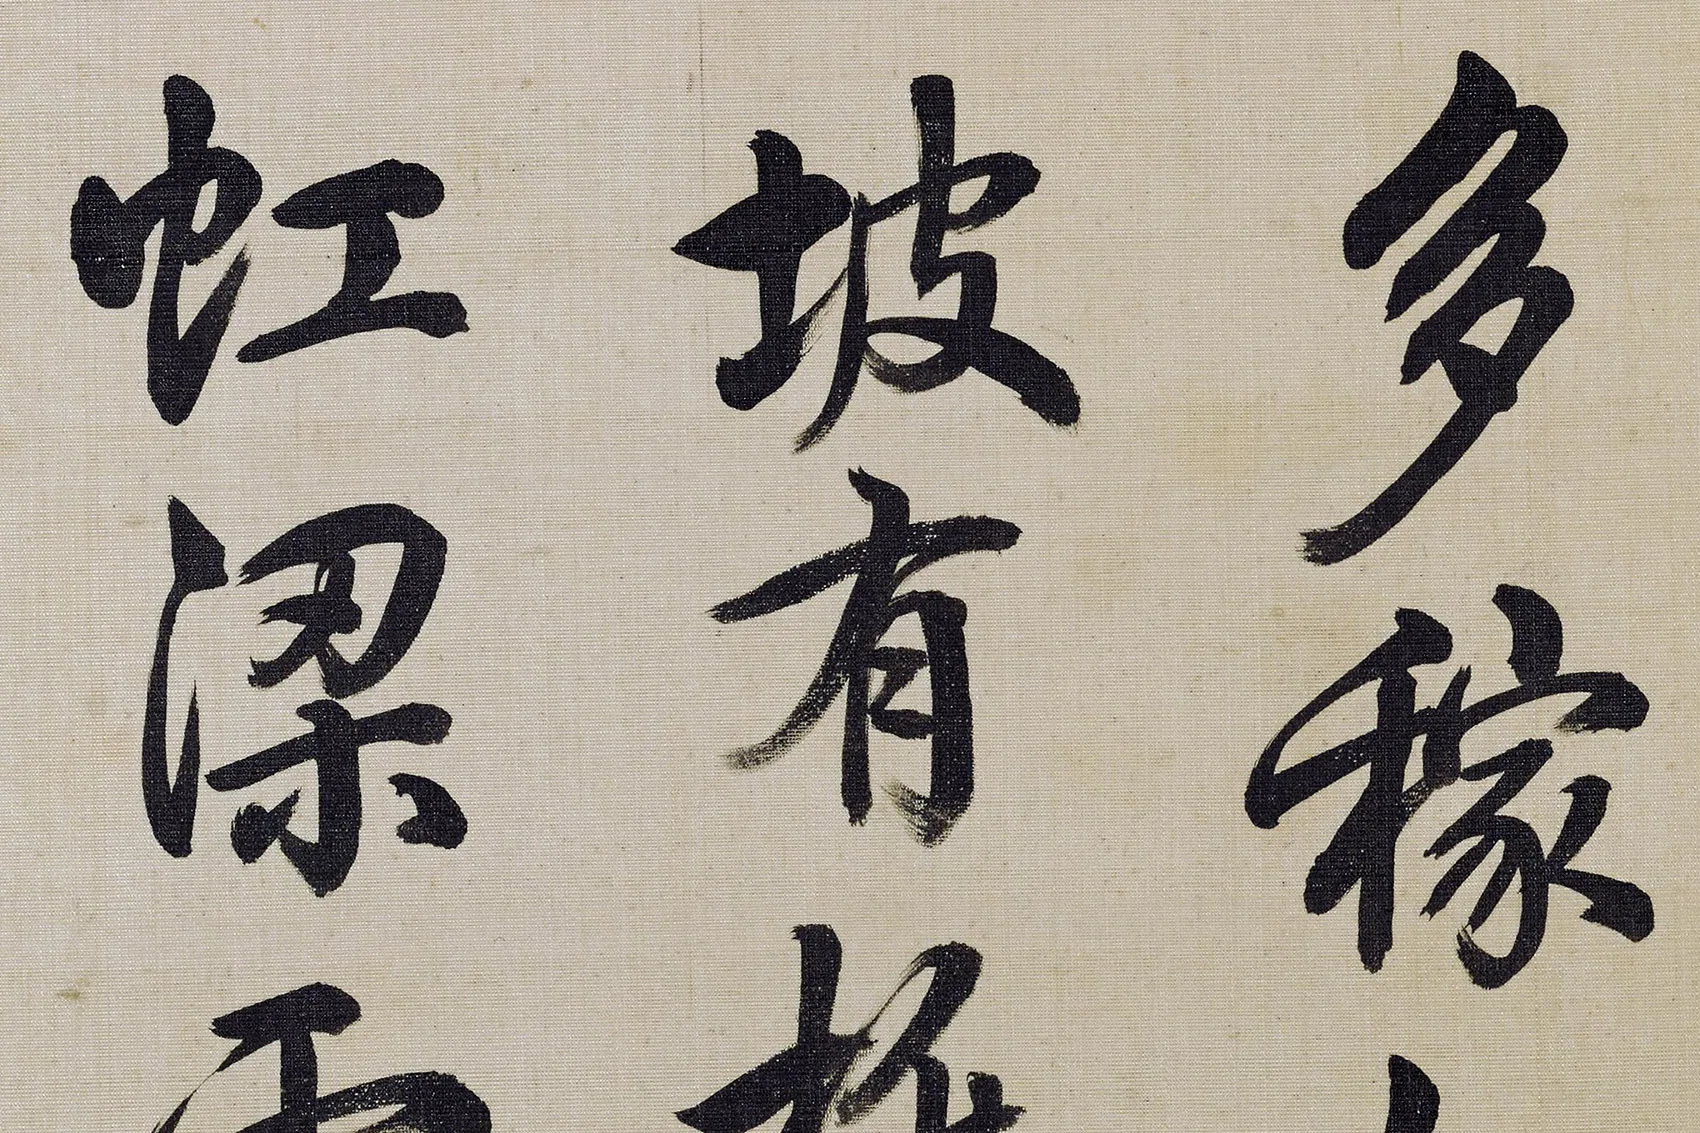 多稼
坡有
虹梁